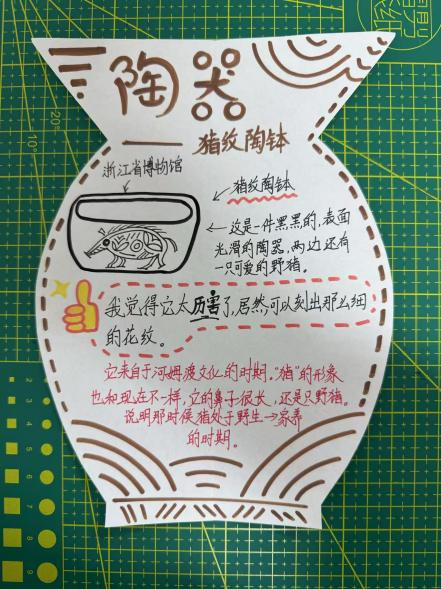 陶器
——猪纹陶钵
浙江省博物馆
猪纹陶钵
这是一件黑黑的,表面
光滑的陶器,两边还有
一只可爱的野猪。
我觉得它太厉害了,居然可以刻出那么细
的花纹。
它来自于河姆渡文化的时期。"猪"的形象
也和现在不一样,它的鼻子很长,还是只野猪。
说明那时候猪处于野生→家养
的时期。
20°
10°
2
3
4
5
6
7
8
9